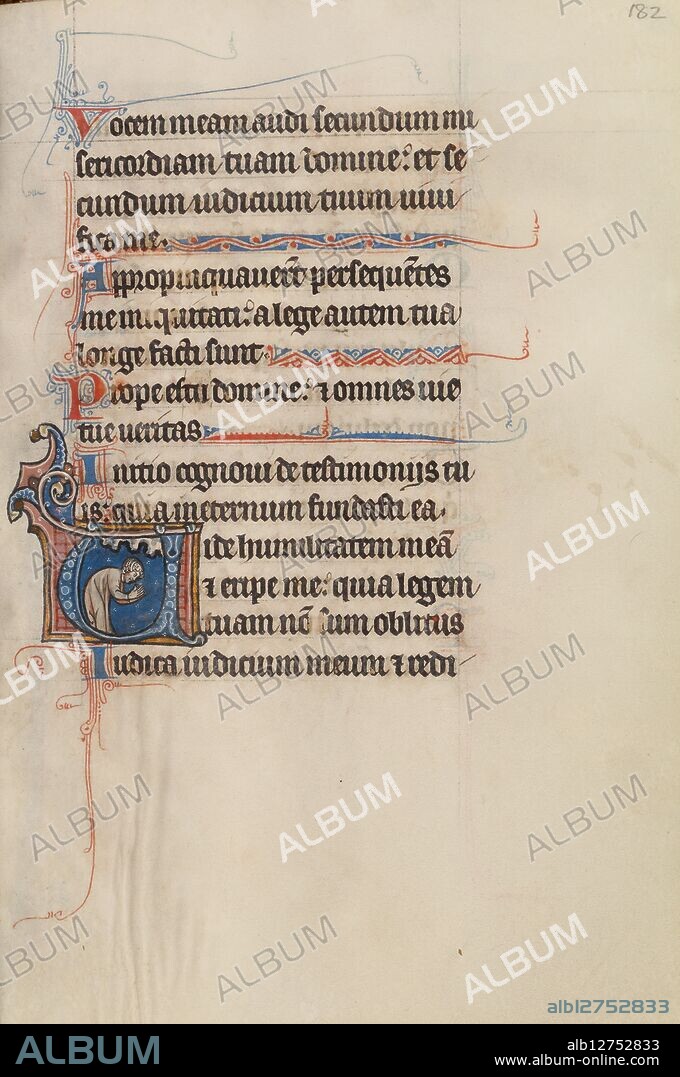 182
Vocem meam audi secundum mi
sericordiam tuam domine: et se
cundum iudicium tuum uiui
fica me.
Appropinquauer̄t persequētes
me iniquitati: a lege autem tua
longe facti sunt.
Prope es tu domine: ⁊ omnes uie
tue ueritas
Initio cognoui de testimonijs tu
is: quia in eternum fundasti ea.
Uide humilitatem meā
⁊ eripe me: quia legem
tuam nō sum oblitus
Iudica iudicium meum ⁊ redi
alb12752833
ALBUM
alb12752833
www.album-online.com